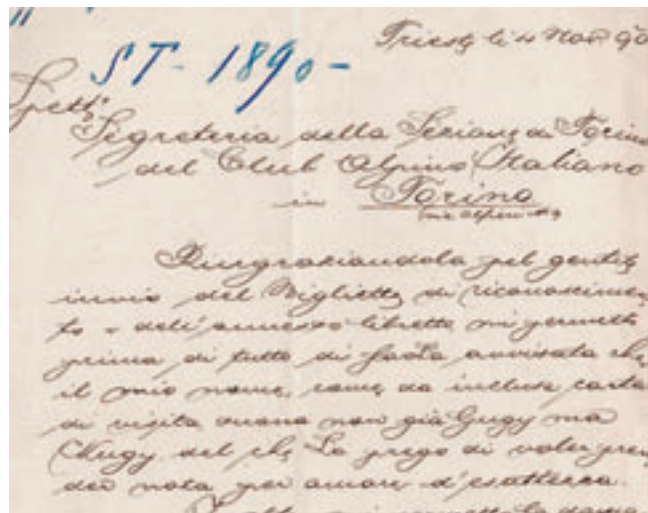 ST-1890-
Trieste li 4 Nov 90
Spett.
Segreteria della Sezione di Torino
del Club Alpino Italiano
in Torino
via Alfieri
Ringraziandola pel gentile
invio del Biglietto di riconoscimen
to e dell'annesso libretto mi permetto
prima di tutto di farLa avvisata che
il mio nome, come da inclusa carta
di visita suona non già Gugy ma
Chugy del che La prego di voler pren
der nota per amore d'esattezza.